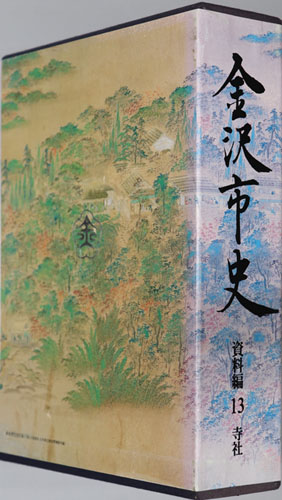 金沢市史
資料編 13 寺社
金